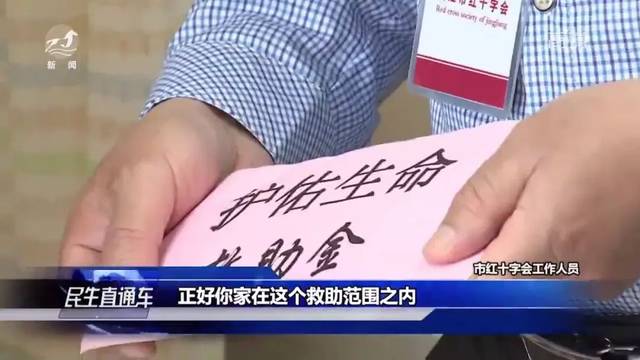 市红十字会
Red cross society of jingjiang
新闻
护佑生命
救助金
市红十字会工作人员
民生直通车
正好你家在这个救助范围之内